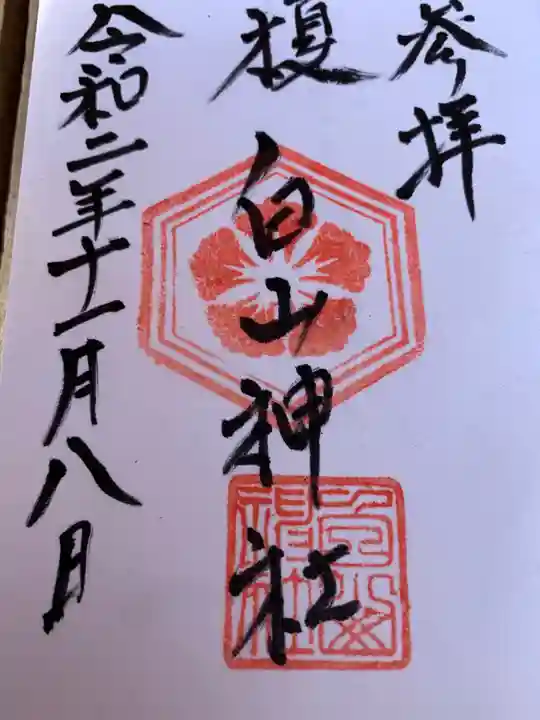 参拝
榎白山神社
令和二年十一月八日
白山神社